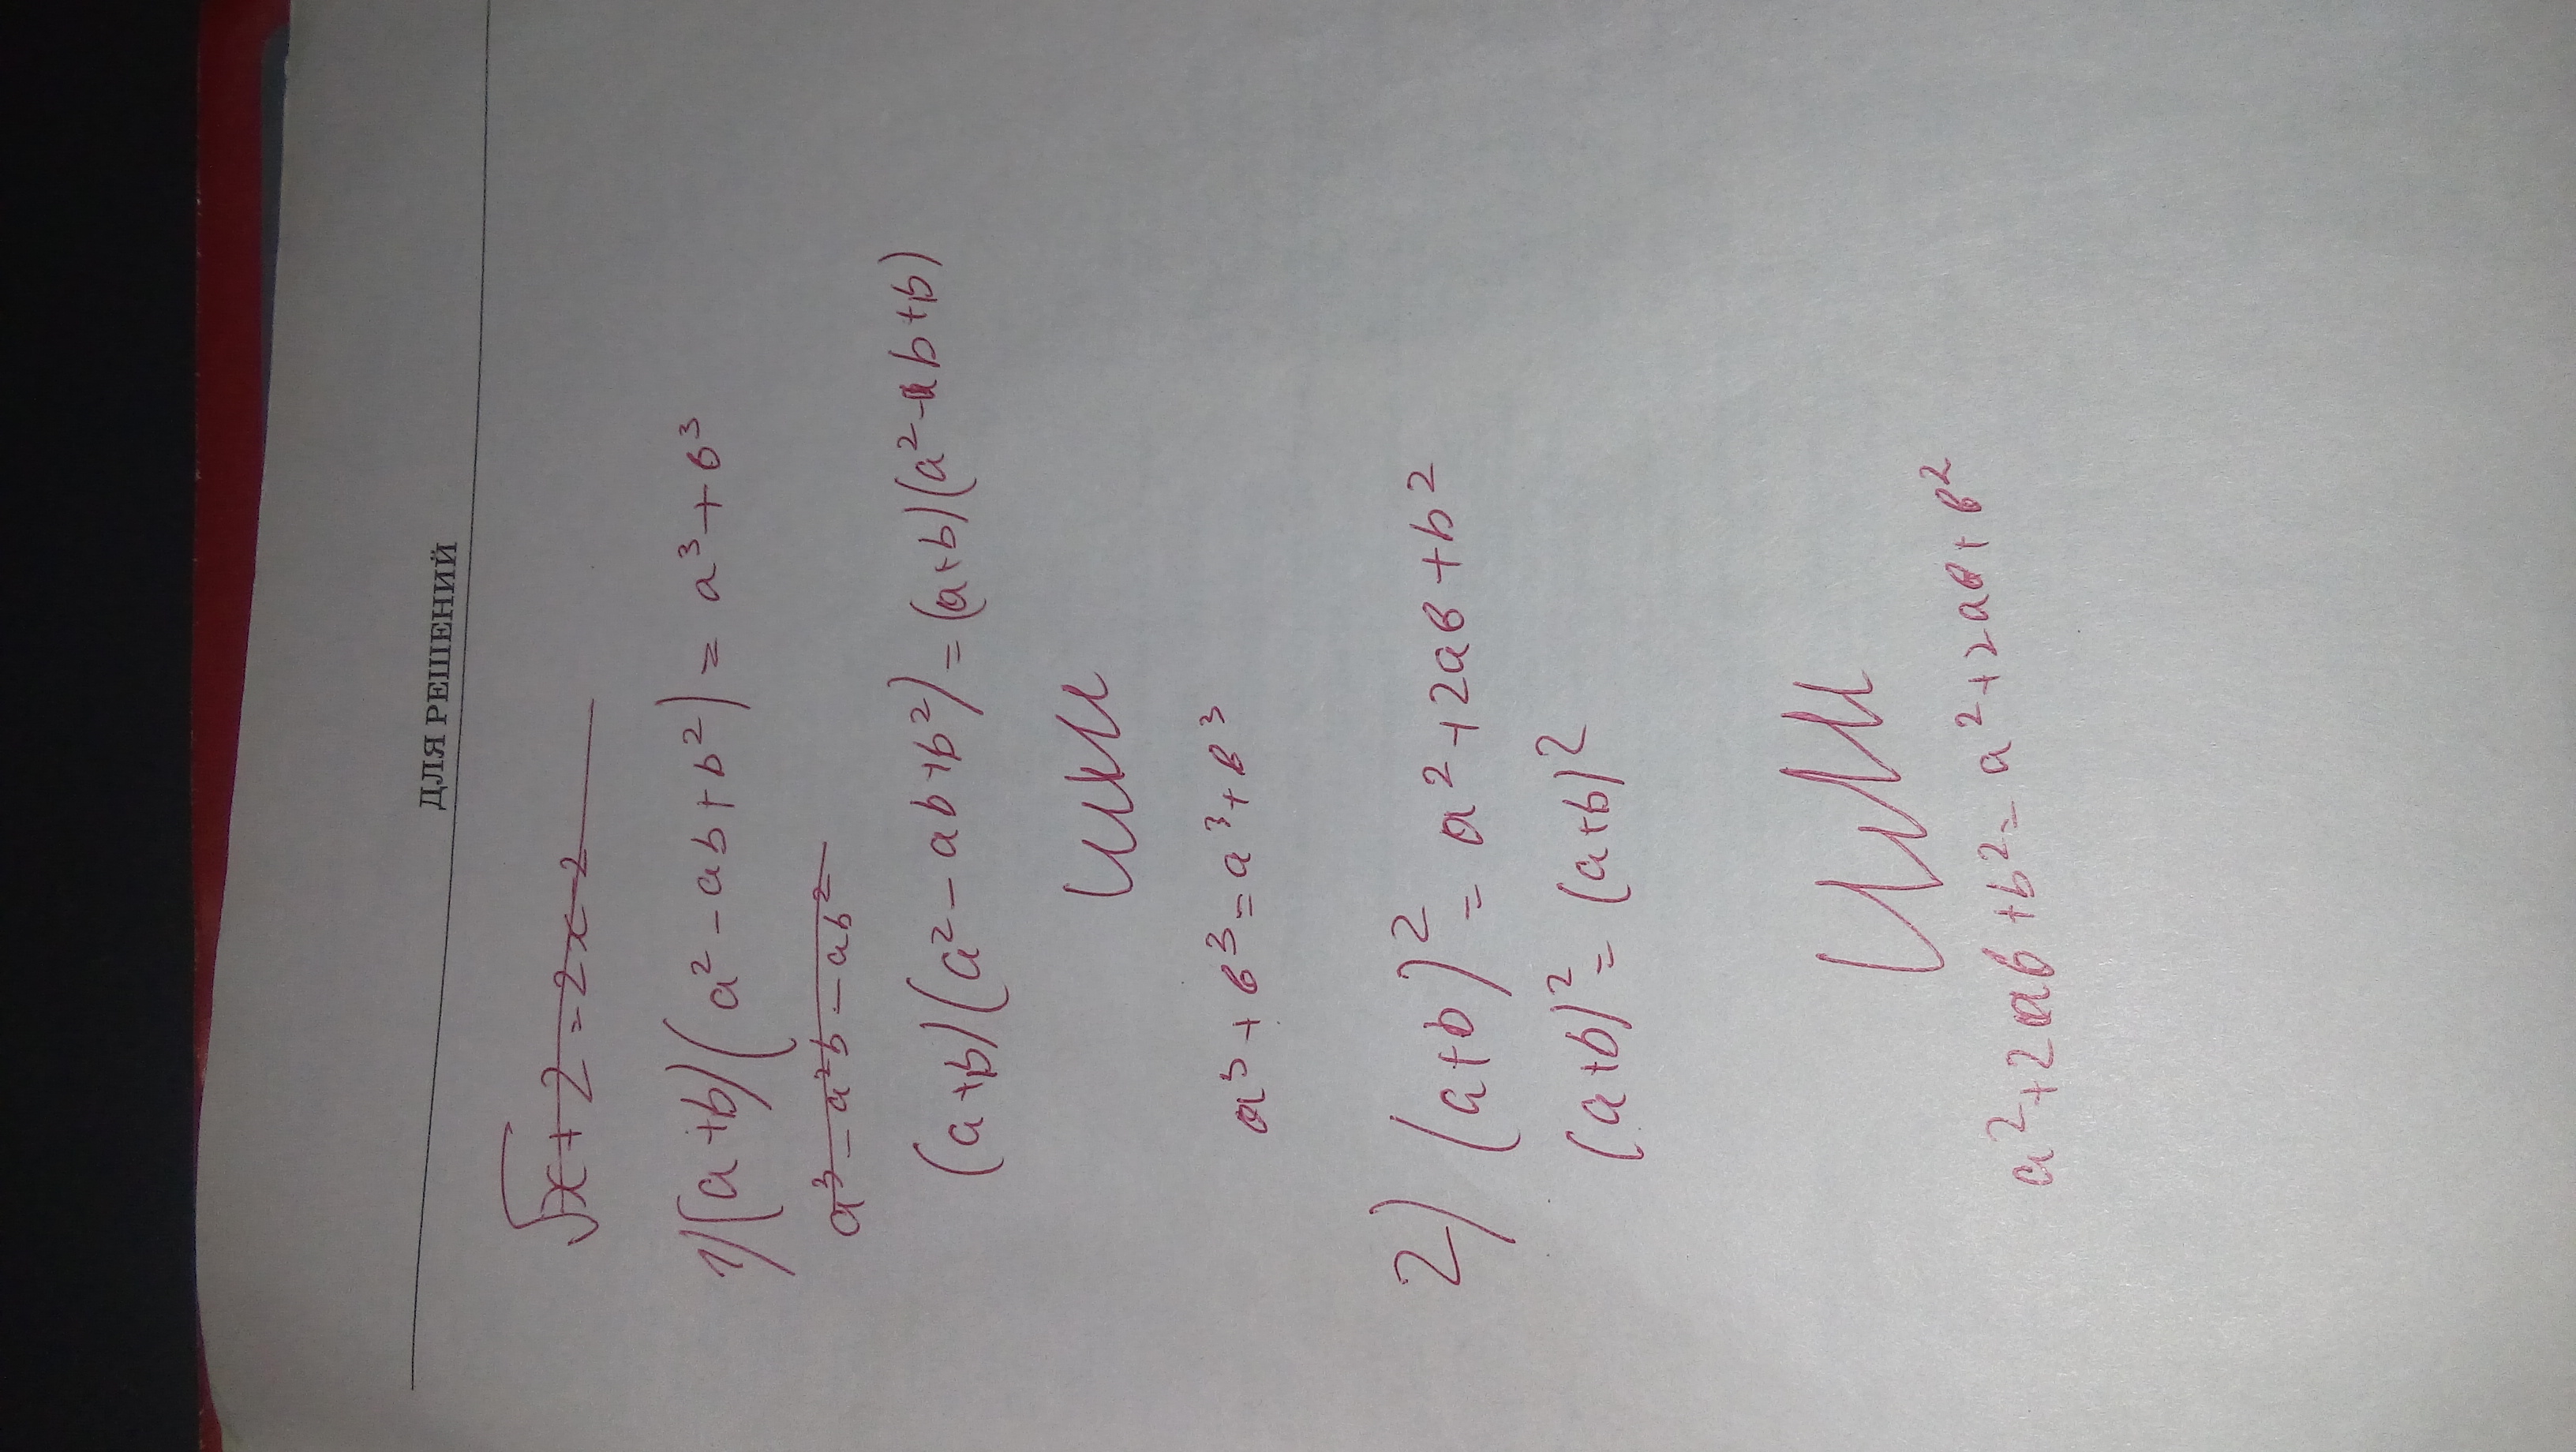 ДЛЯ РЕШЕНИЙ
√x+2=2x-2
1)(a+b)(a²-ab+b²)=a³+b³
a³-a²b-ab²
(a+b)(a²-ab+b²)=(a+b)(a²-ab+b)
или
a³+b³=a³+b³
2) (a+b)²=a²+2ab+b²
(a+b)²=(a+b)²
или
a²+2ab+b²=a²+2ab+b²